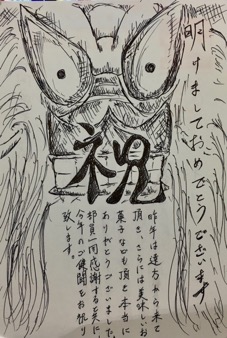 明けましておめでとうございます
祝
昨年は遠方から来て
頂き、さらには美味しいお
菓子なども頂き本当に
ありがとうございました。
部員一同感謝すると共に
今年のご健闘をお祈り
致します。